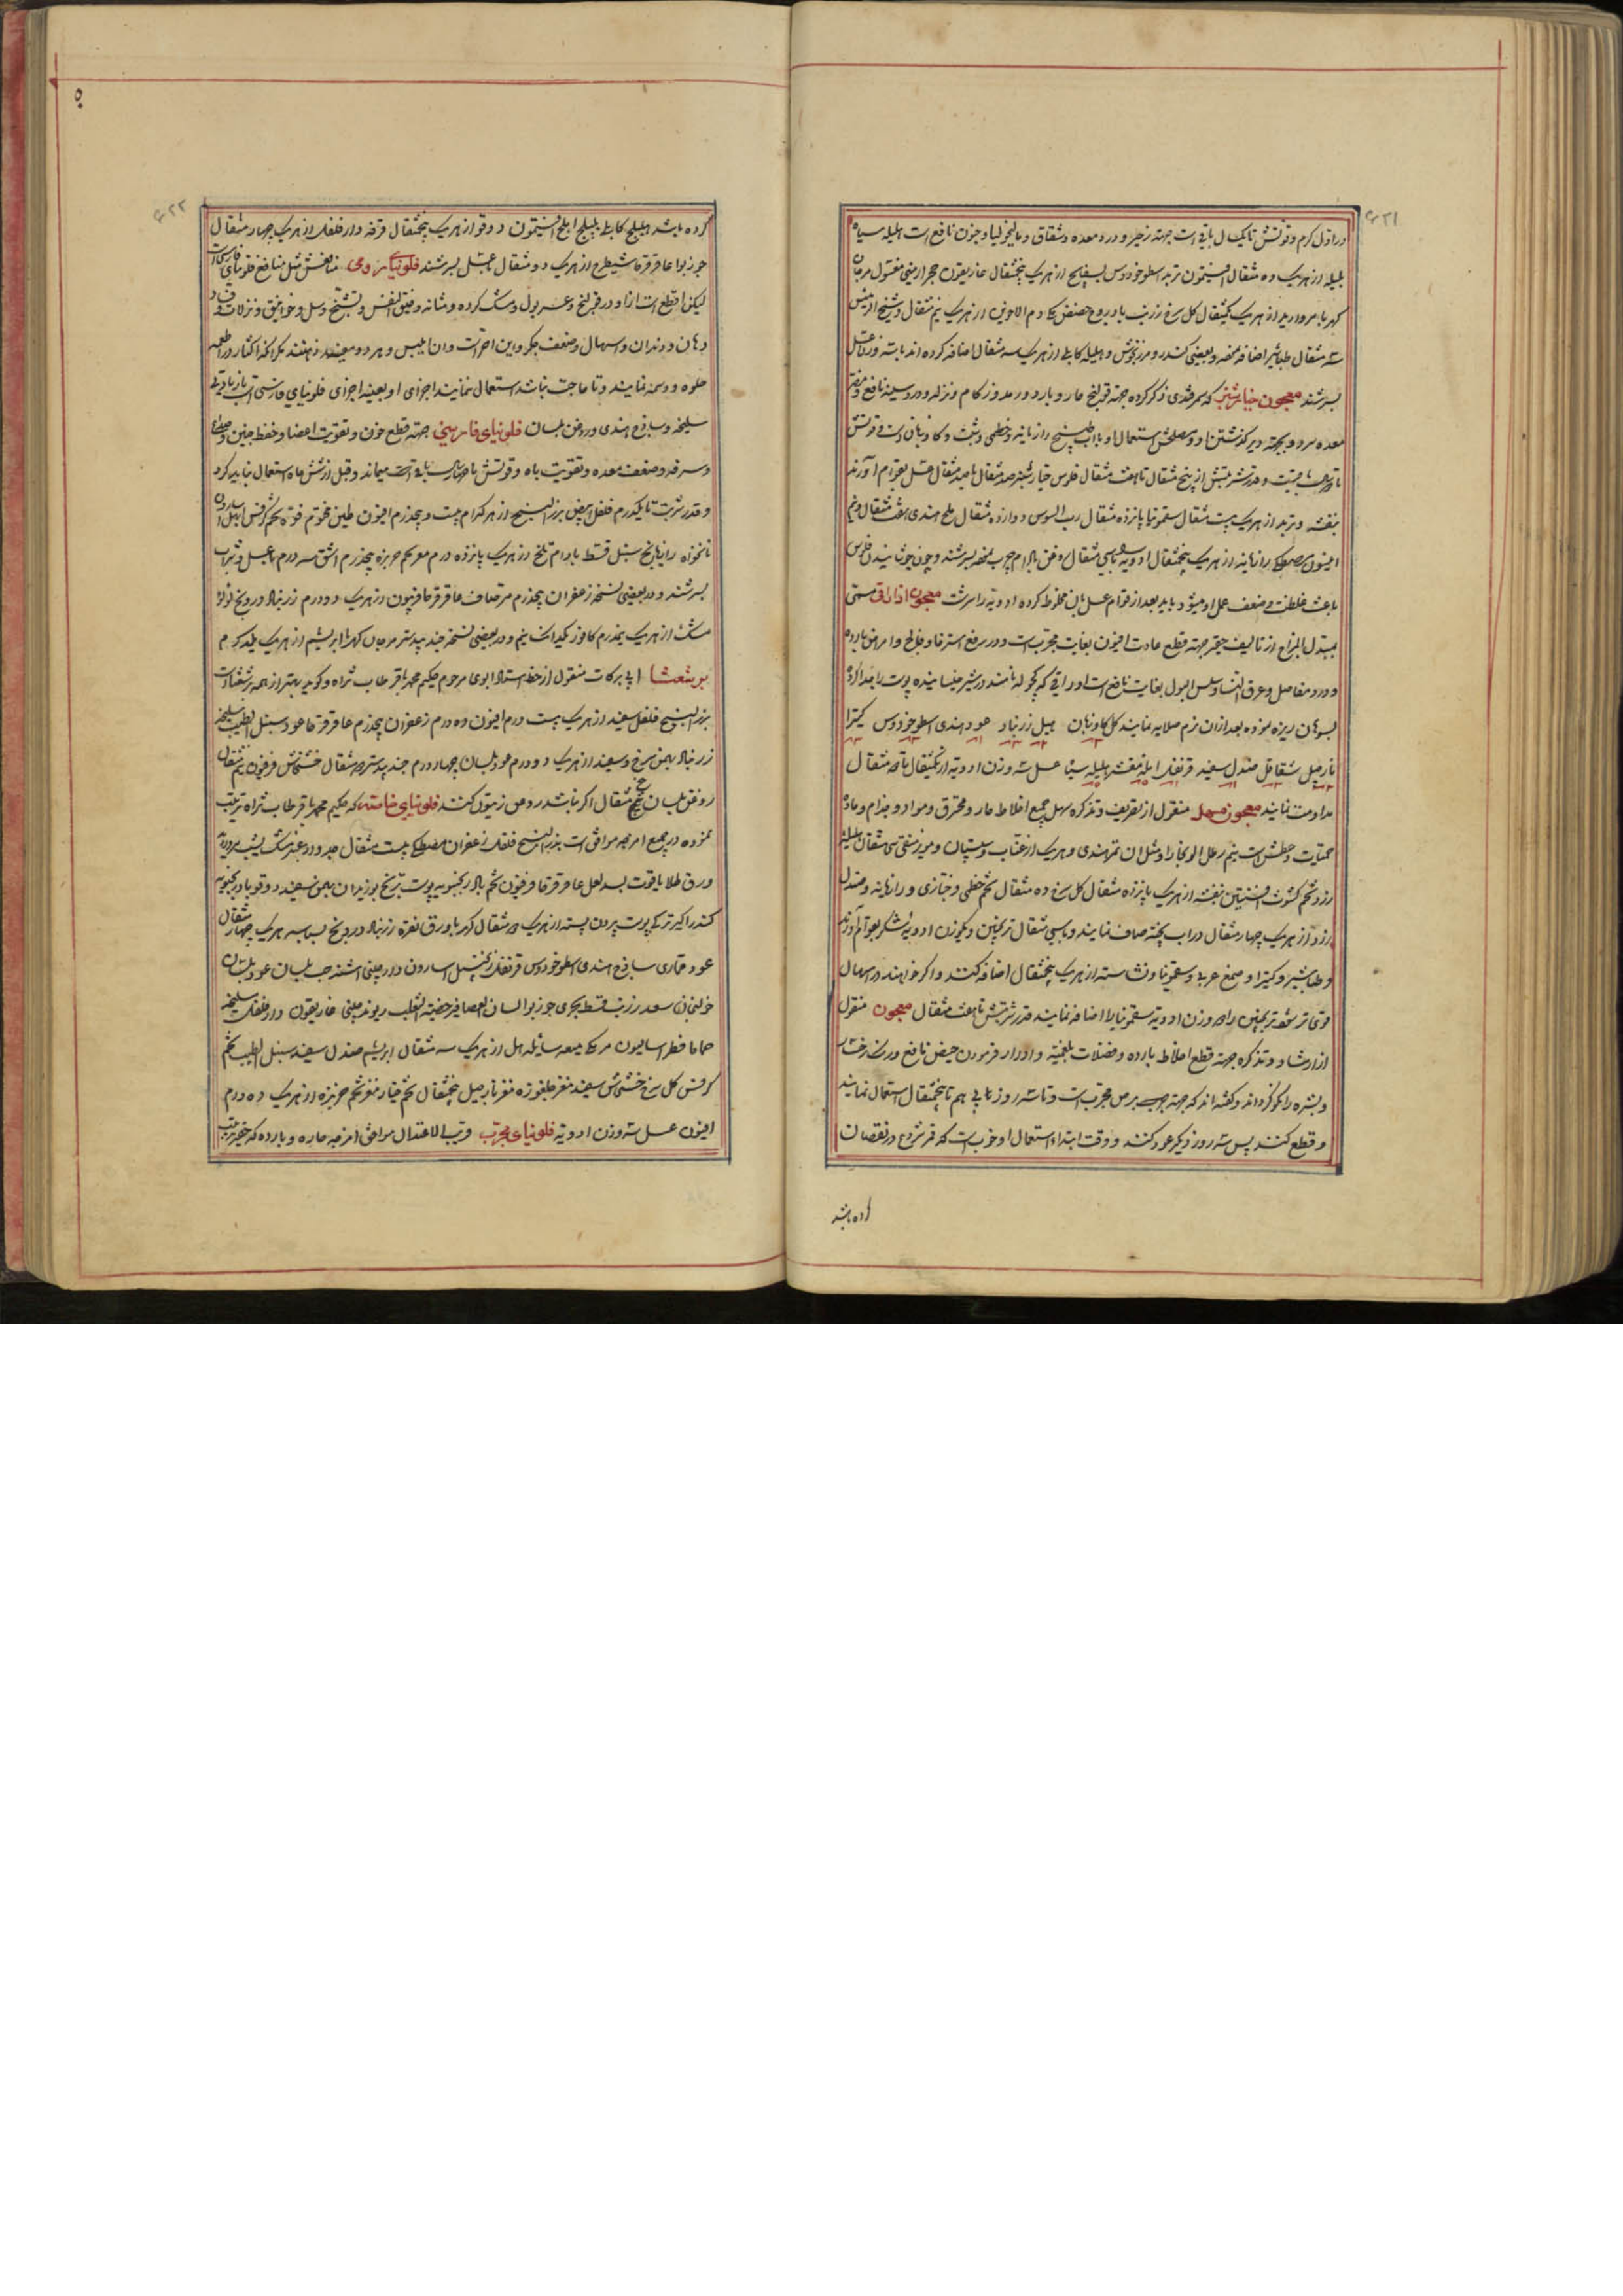 در اول گرم و قوتش تا یکسال باقی است جهة زحیر و درد معده و شقاق و مالیخولیا و جنون نافع است هلیله سیاه
بلیله از هریک ده مثقال افتیمون تربد اسطوخودوس بسفایج از هریک پنجمثقال غاریقون حجر ارمنی مغسول مرجان
کهربا مروارید از هریک یکمثقال کل سرخ زرنب بادروج حضض مکی دم الاخوین از هریک نیم مثقال و شیخ الرئیس
سه مثقال طباشیر اضافه نموده و بعضی کندر و مرزنجوش و هلیله کابلی از هریک سه مثقال اضافه کرده‌اند با سه وزن عسل
بسرشند معجون خیارشنبر که سمرقندی ذکر کرده جهة قولنج حار و بارد و رمد و زکام و نزله و درد سینه نافع و مضر
معده سرد و بجهة دیر گذشتن او و مصلحش استعمال او با آب طبیخ رازیانه و خطمی و شبت و گاوزبان است و قوتش
تا دو سال باقیست و قدر شربتش از پنج مثقال تا هفت مثقال فلوس خیارشنبر صد مثقال با صد مثقال عسل بقوام آورند
بنفشه و تربد از هریک بیست مثقال سقمونیا پانزده مثقال رب السوس دوازده مثقال ملح هندی هفت مثقال و نیم
انیسون مصطکی رازیانه از هریک پنجمثقال ادویه را بسی مثقال روغن بادام چرب نموده بسرشند و چون جوشانیدن فلوس
باعث غلظت و ضعف عمل او میشود باید بعد از قوام عسل بآن مخلوط کرده ادویه را سرشت معجون اذاراقی مسمی
بمبدل المزاج از تالیف حقیر جهة قطع عادت افیون بغایت مجربست و در رفع استرخا و فالج و امراض بارده
و درد مفاصل و عرق النسا و سلس البول بغایت نافع است اذاراقی که کچوله نامند در شیر خیسانیده پوست را جدا کرده
بسوهان ریزه نموده بعد از آن نرم صلایه نمایند گل گاوزبان هیل زرنباد عود هندی اسطوخودوس کتیرا
نارجیل شقاقل صندل سفید قرنفل آمله مقشر هلیله سیاه عسل سه وزن ادویه از یکمثقال تا دو مثقال
مداومت نمایند معجون مسهل منقول از تعریف و تذکره مسهل جمیع اخلاط حار و محترق و مواد و جذام و ماده
حمیات و عطش است نیم رطل آلوبخارا و مثل آن تمرهندی و هریک از عناب و سپستان و مویز منقی سی مثقال هلیله
زرد و تخم کشوث افسنتین بنفشه از هریک پانزده مثقال گل سرخ ده مثقال تخم خطمی و خبازی و رازیانه و صندل
زرد از هریک چهار مثقال در آب پخته صاف نمایند و با سی مثقال ترنجبین و یکوزن ادویه شکر بقوام آورند
و طباشیر و کتیرا و صمغ عربی و سقمونیا و نشاسته از هریک پنجمثقال اضافه کنند و اگر خواهند در اسهال
قوی تر شود ترنجبین را دو وزن ادویه سقمونیا را اضافه نمایند قدر شربتش تا هفت مثقال معجون منقول
از ارشاد و تذکره جهة قطع اخلاط بارده و فضلات بلغمیه و ادرار فرمودن حیض نافع و رنگ رخسار
و بشره را نیکو گرداند و گفته‌اند که جهة جرب و برص مجرب است و تا سه روز پیاپی هم تا پنجمثقال استعمال نمایند
و قطع کنند پس سه روز دیگر عود کنند و وقت ابتداء استعمال او خوب است که قمر شروع در نقصان
کرده باشد
کرده باشد هلیلج کابلی بلیلج املج افتیمون و دوقو از هریک پنجمثقال قرفه دارفلفل از هریک چهار مثقال
جوزبوا عاقرقرحا شیطرج از هریک دو مثقال بعسل بسرشند فلونیای رومی منافعش مثل منافع فلونیای فارسی است
لیکن اقطع است از او در قولنج و عسر بول و سنگ گرده و مثانه و ضیق النفس و تشنج و سل و خوانیق و نزلات و فساد
دهان و دندان و اسهال و ضعف جگر و این احر است و آن ایبس و هر دو مضرند
حلوه و دسمه نمایند و تا حاجت نباشد استعمال ننمایند اجزای او بعینه اجزای فلونیای فارسی است با زیادتی
سلیخه و ساذج هندی و روغن بلسان فلونیای فارسی جهة قطع خون و تقویت اعضا و حفظ جنین و صداع
و سرفه و ضعف معده و تقویت باه و قوتش تا چهار سال باقی میماند و قبل از شش ماه استعمال نباید کرد
و قدر شربت تا یکدرم فلفل ابیض بزر البنج از هرکدام بیست و پنجدرم افیون طین مختوم فوه تخم کرفس ابهل اسارون
نانخواه رازیانج سنبل قسط بادام تلخ از هریک پانزده درم مغز تخم خربزه پنجدرم اشق سه درم با عسل و شراب
بسرشند و در بعضی نسخه زعفران پنجدرم مر صاف عاقرقرحا فرفیون از هریک دو درم زرنباد درونج لؤلؤ
مشک از هریک نیمدرم کافور یکدانک و نیم و در بعضی نسخه جندبیدستر مرجان کهربا ابریشم از هریک یکدرم
برشعثا ابی البرکات منقول از خط استاد ابوی مرحوم حکیم محمد باقر طاب ثراه و گوید بهتر از همه برشعثا است
بزر البنج فلفل سفید از هریک بیست درم افیون ده درم زعفران پنجدرم عاقرقرحا عود سنبل الطیب سلیخه
زرنباد بهمن سرخ و سفید از هریک دو درم عود بلسان چهار درم جندبیدستر دو مثقال خشخاش فرفیون نیم مثقال
روغن بلسان پنج مثقال اگر نباشد روغن زیتون کنند فلونیای خاصه که حکیم محمد باقر طاب ثراه ترتیب
نموده در جمیع امزجه موافق است بزر البنج فلفل زعفران مصطکی بیست مثقال جدوار عنبر مشک یشب مروارید
ورق طلا یاقوت بسد لعل عاقرقرحا فرفیون تخم بادرنجبویه پوست ترنج بوزیدان بهمن سفید دوقو بادرنجبویه
کندر اکیر ترکی پوست بیرون پسته از هریک دو مثقال کهربا ورق نقره زرنباد درونج بسباسه هریک چهار مثقال
عود قماری ساذج هندی اسطوخودوس قرنفل زنجبیل اسارون دارچینی اشنه حب بلسان عود بلسان
خولنجان سعد زرنب قسط بحری جوزبوا لسان العصافیر خصیة الثعلب ریوند چینی غاریقون دارفلفل سلیخه
حماما فطراسالیون مر مکی میعه سائله هل از هریک سه مثقال ابریشم صندل سفید سنبل الطیب تخم
کرفس گل سرخ خشخاش سفید مغز چلغوزه مغز نارجیل پنجمثقال تخم خیار مغز تخم خربزه از هریک ده درم
افیون عسل سه وزن ادویه فلونیای مجرب قریب الاعتدال موافق امزجه حاره و بارده که حقیر ترتیب